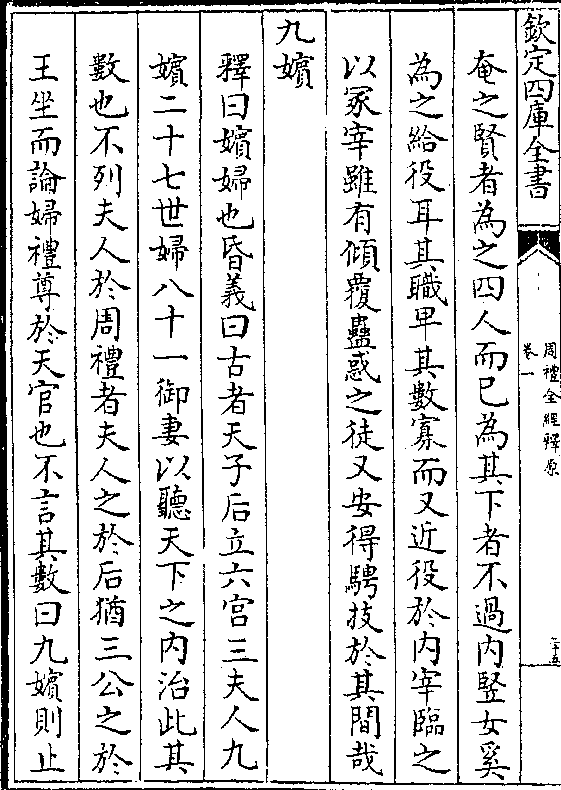 欽定四庫全書
周禮全經釋原
卷一
三十五
奄之賢者為之四人而已為其下者不過內豎女奚
為之給役耳其職卑其數寡而又近役於內宰臨之
以冢宰雖有傾覆蠱惑之徒又安得騁技於其間哉
九嬪
釋曰嬪婦也昏義曰古者天子后立六宮三夫人九
嬪二十七世婦八十一御妻以聽天下之内治此其
數也不列夫人於周禮者夫人之於后猶三公之於
王坐而論婦禮尊於天官也不言其數曰九嬪則止